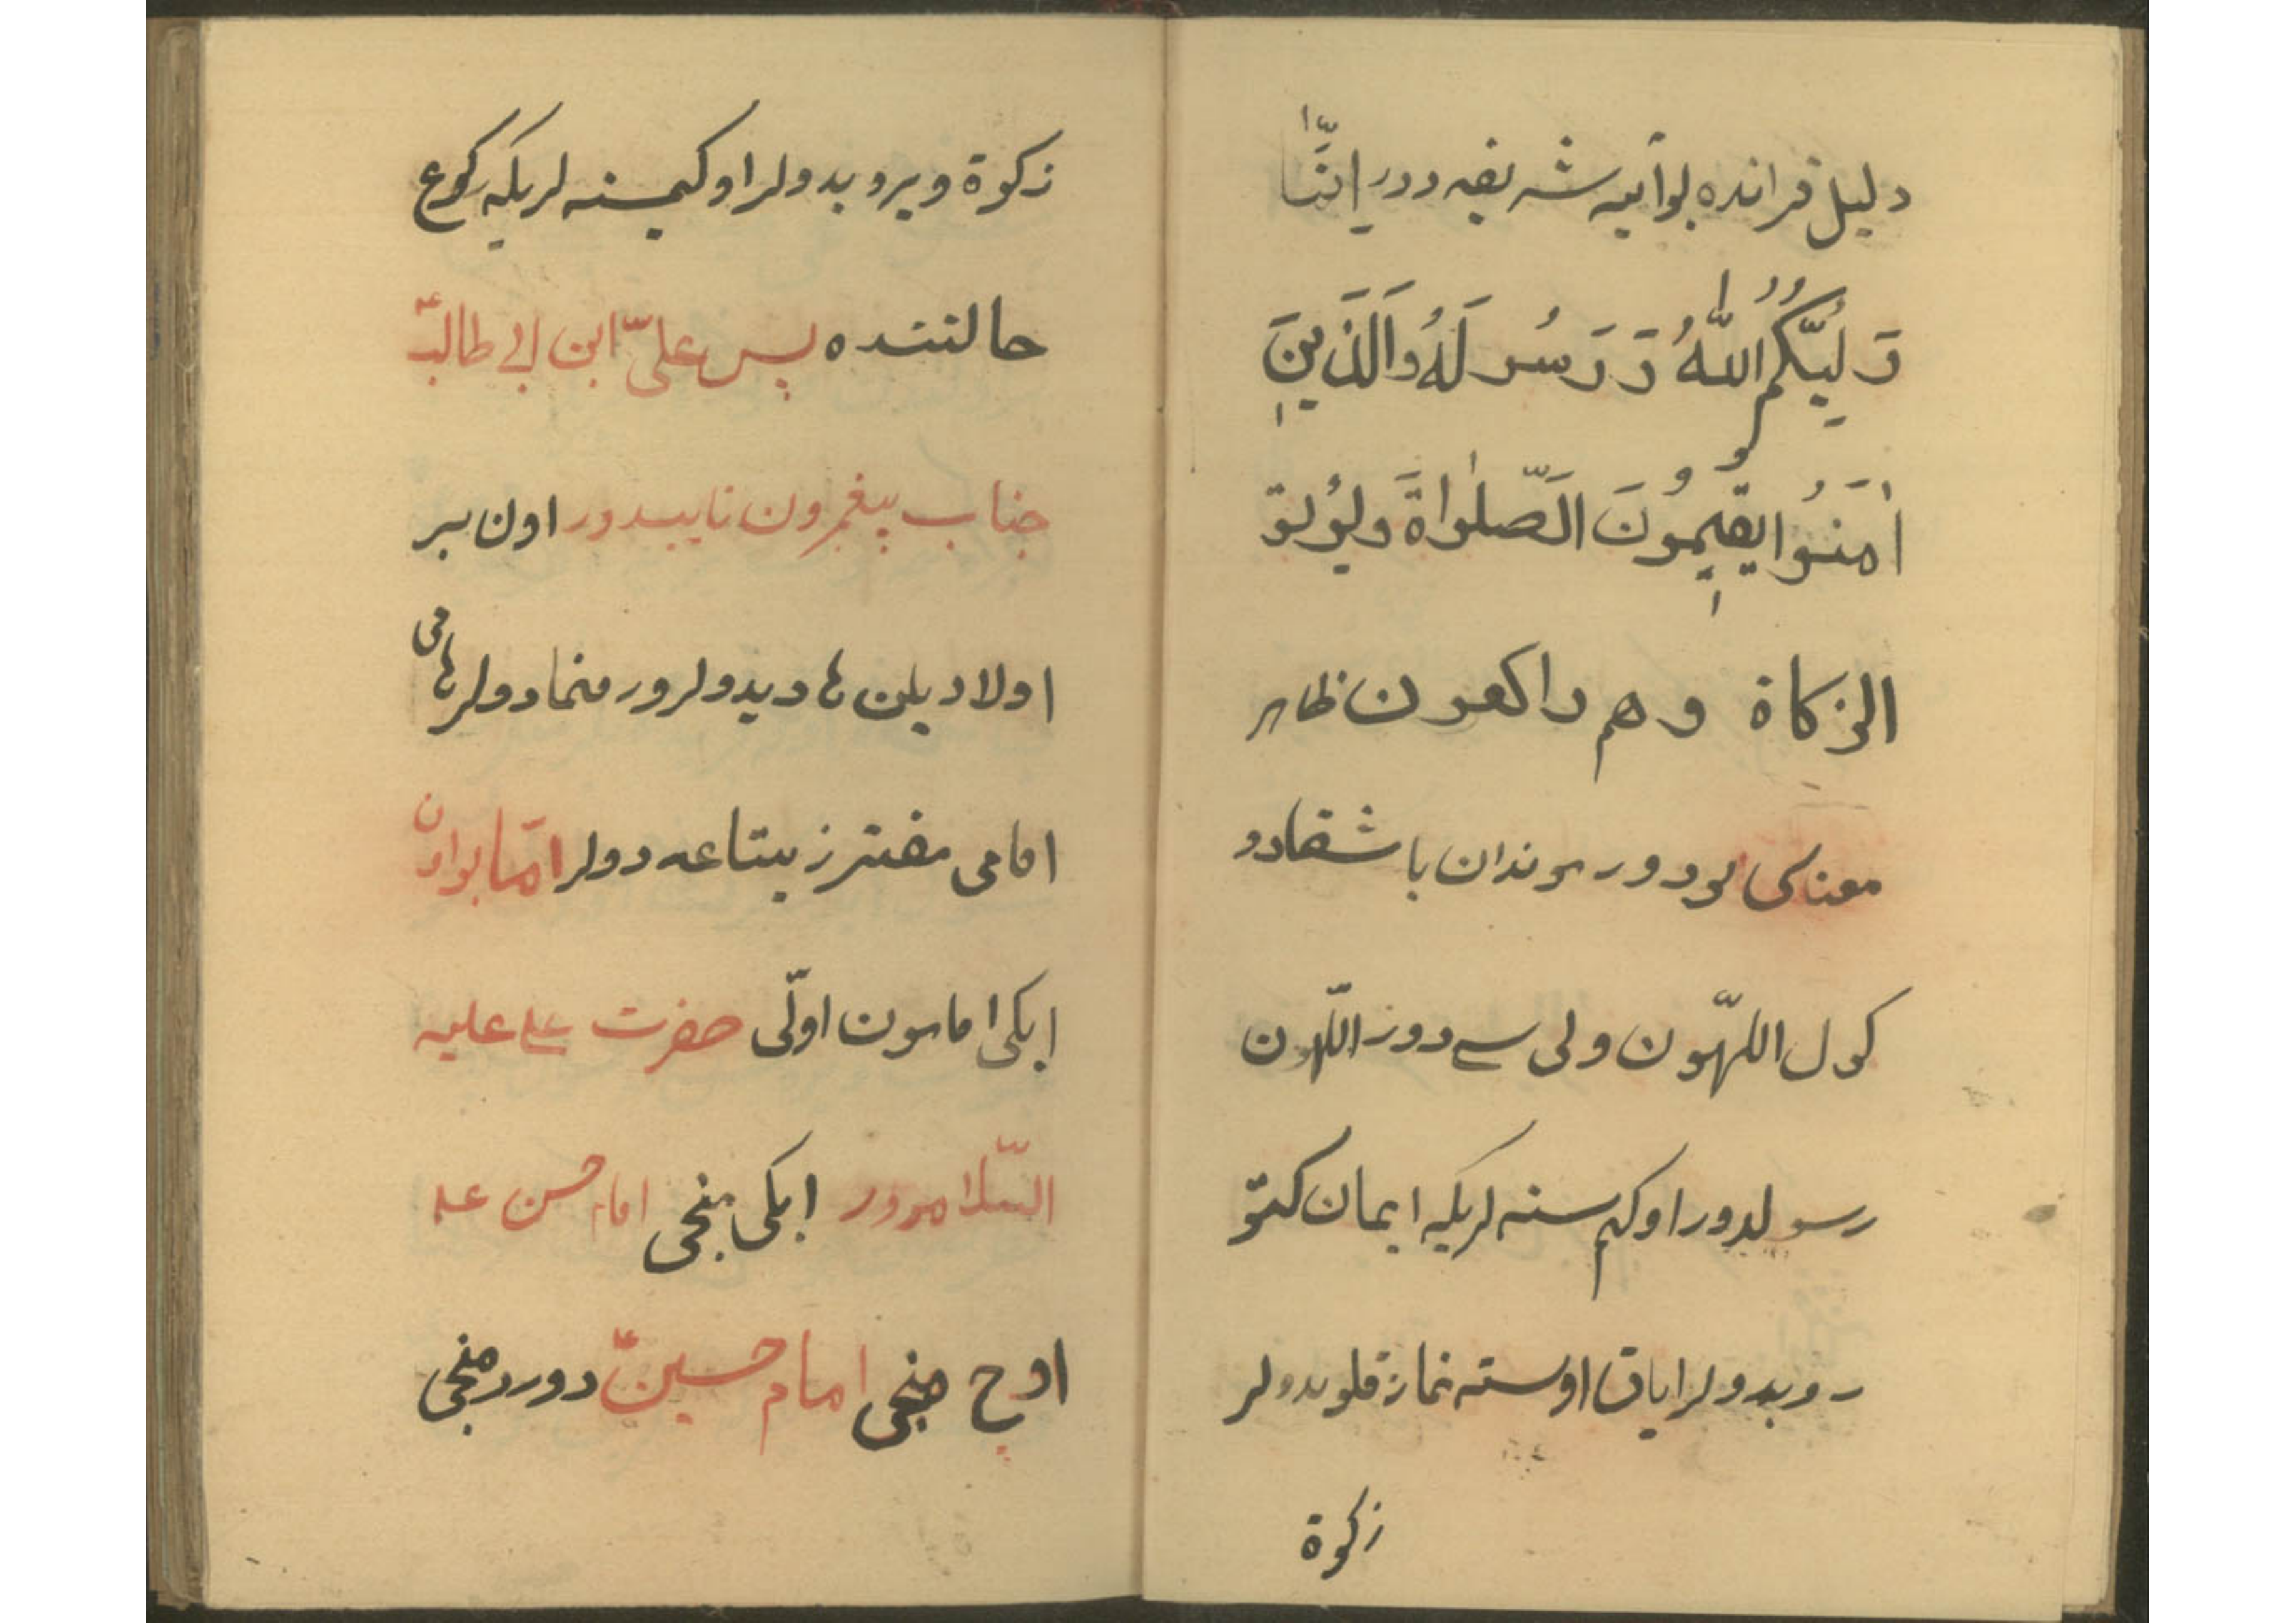 دلیل قرانده بو آیه شریفه دور اِنَّمٰا
وَلِیُّکُمُ اللّٰهُ وَ رَسُولَهُ وَالَّذٖینَ
اٰمَنُوا یُقیٖمُونَ الَصّلٰواةَ ویؤتو
الزکاة وهم راکعون ظاهر
معناسی بودور بوندان باشقادو
کول اللّهون ولی سی دور اللّهون
رسولدور او کیمسنه لریکه ایمان کتو
روبدولر ایاق اوسته نماز قلوبدولر
زکوة
زکوة ویروبدولر اوکیمسنه لریکه رکوع
حالتنده پس علیّ ابن ابی طالبؑ
جناب پیغمبرون نایبدور اون بیر
اولادیلن
امامی مفترز یتاعه دولر امّا بو اون
ایکی امامون اوّلی حضرت علی علیه
السّلامدور ایکی منجی امام حسن علیه
اوچ منجی امام حسینؑ دور دورد منجی